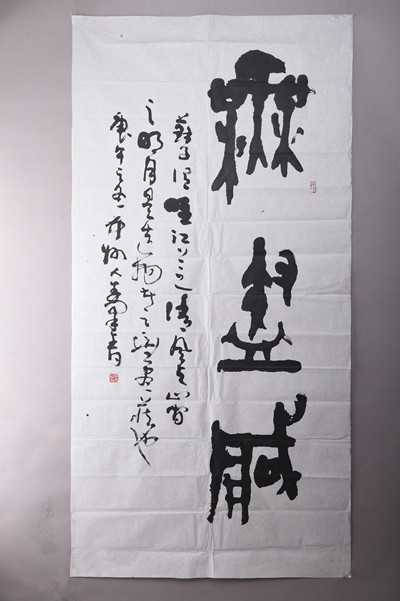 無盡藏
蘇子謂唯江上之清風與山間
之明月是造物者之無盡藏也
庚午之冬